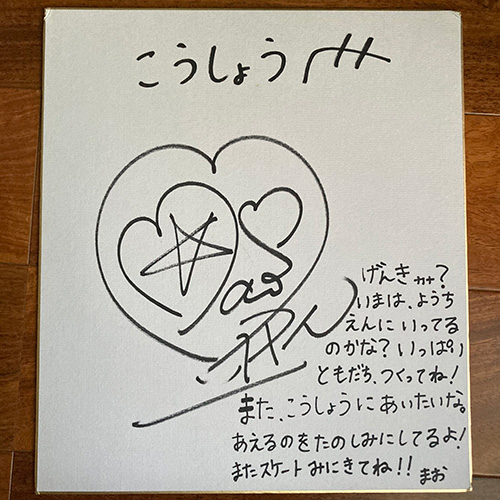 こうしょう
げんき??
いまは、ようち
えんにいってる
のかな?いっぱい
ともだち、つくってね!
また、こうしょうにあいたいな。
あえるのをたのしみにしてるよ!
またスケートみにきてね!! まお